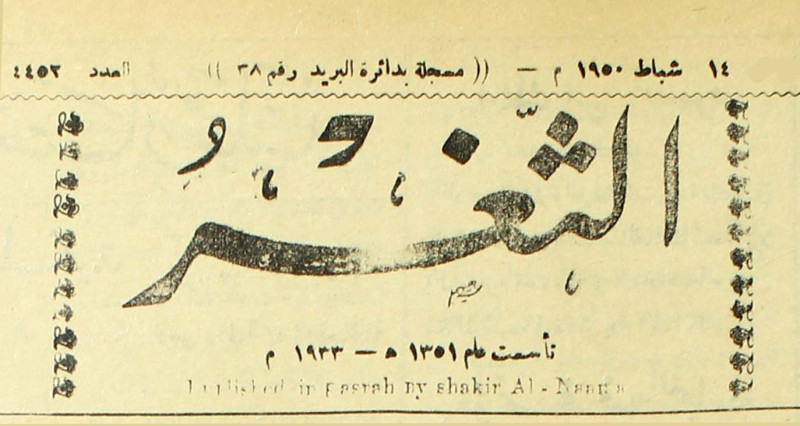 ١٤ شباط ١٩٥٠ م — (( مسجلة بدائرة البريد رقم ٣٨ )) العدد ٤٤٥٢
الثغر
تأسست عام ١٣٥١ ه — ١٩٣٣ م
Published in Basrah By shakir Al - Naama